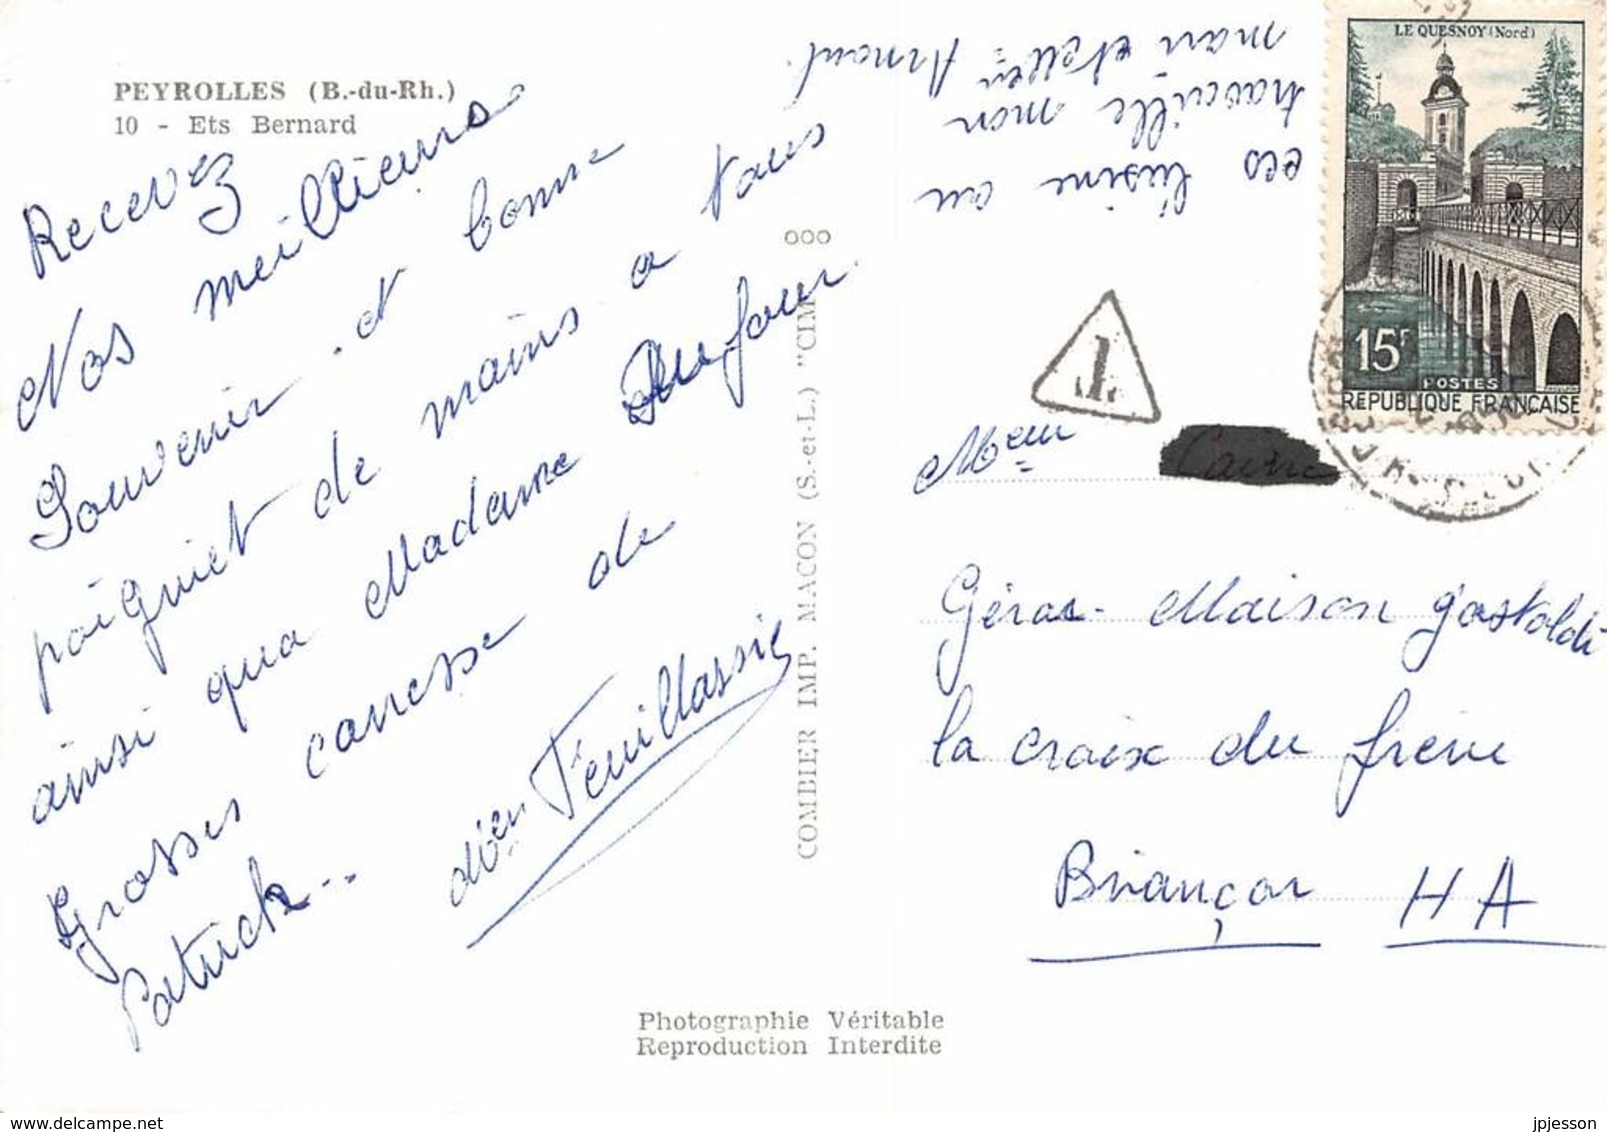 PEYROLLES (B.-du-Rh.)
10 - Ets Bernard
Recevez
Nos meillieurs
Souvenir et bonne
poigniet de mains a tous
ainsi qua Madame Dufour.
Grosses caresse de
Patrick...
Feuillassie
COMBIER IMP. MACON (S.-et-L.) "CIM"
ooo
ces l'usine au
travaille mon
mari et
T
LE QUESNOY (Nord)
15F
POSTES
REPUBLIQUE FRANÇAISE
Meur
Géran- Maison Gastoldi
la croix du frene
Briançon HA
Photographie Véritable
Reproduction Interdite
delcampe.net
jpjesson